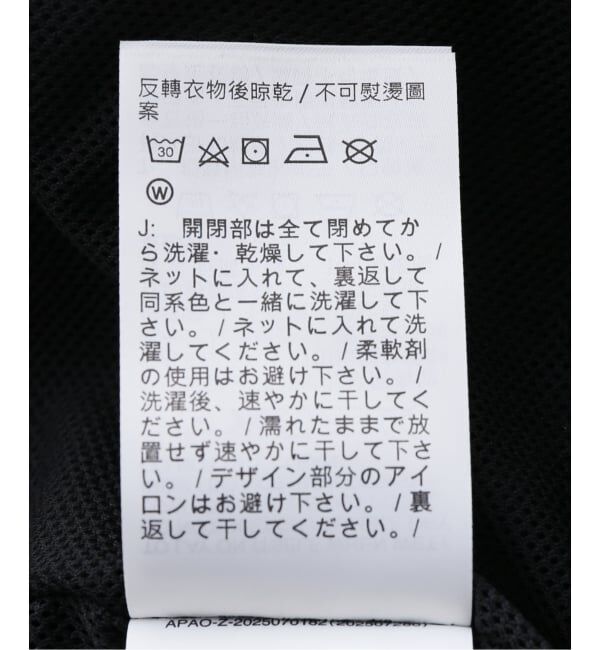 反轉衣物後晾乾 / 不可熨燙圖
案
30
W
J:　開閉部は全て閉めてか
ら洗濯・乾燥して下さい。 /
ネットに入れて、裏返して
同系色と一緒に洗濯して下
さい。 / ネットに入れて洗
濯してください。 / 柔軟剤
の使用はお避け下さい。 /
洗濯後、速やかに干してく
ださい。 / 濡れたままで放
置せず速やかに干して下さ
い。 / デザイン部分のアイ
ロンはお避け下さい。 / 裏
返して干してください。 /